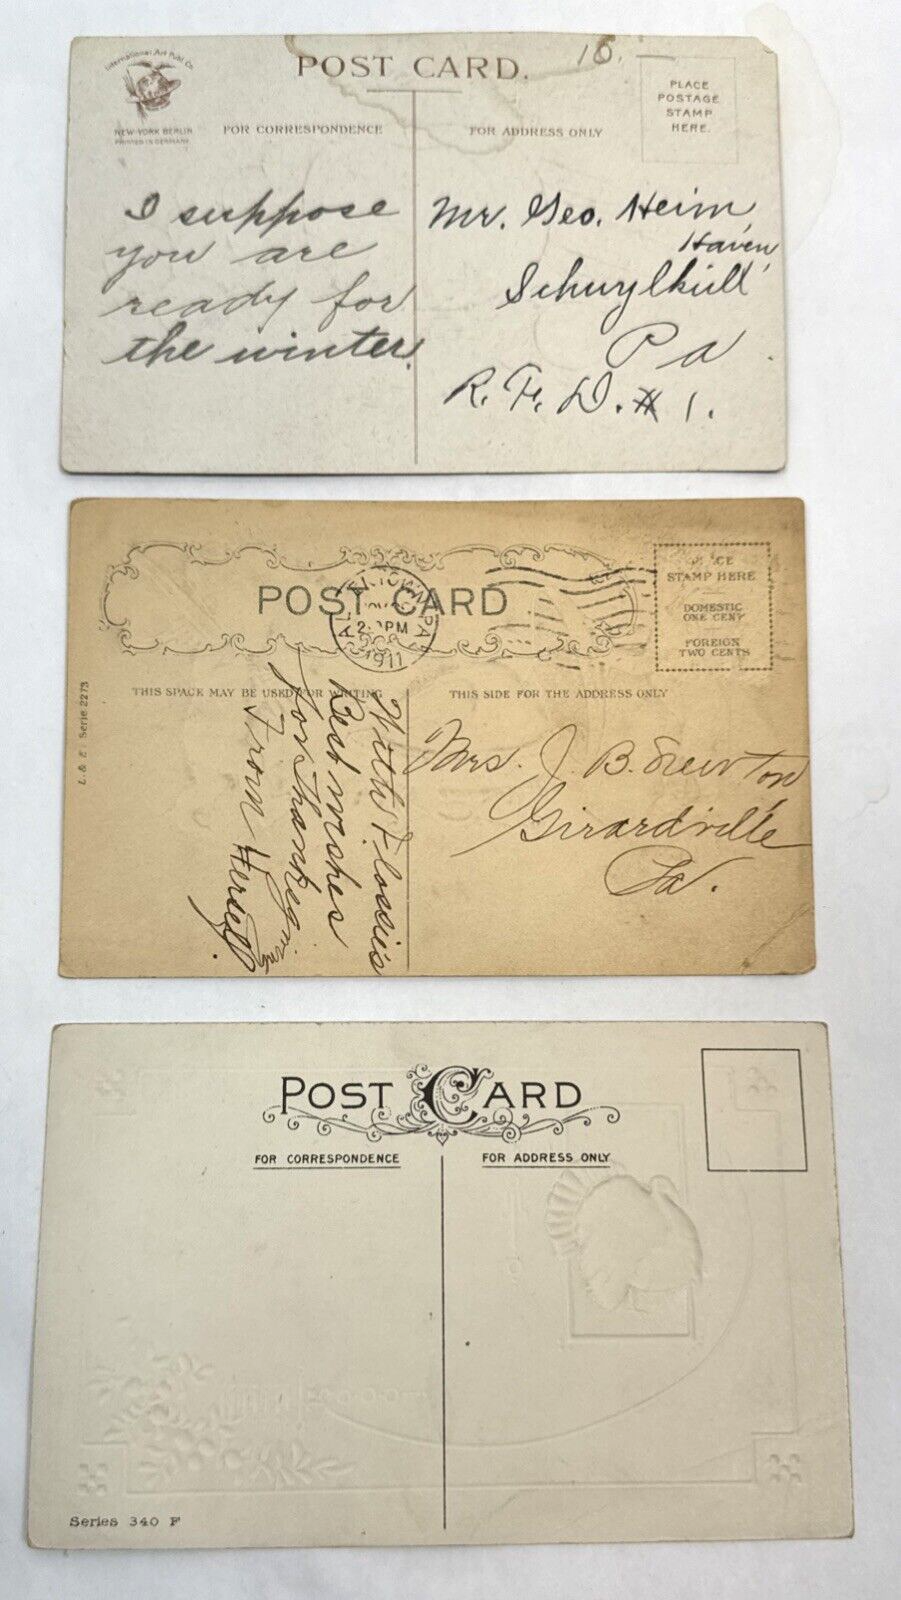 International Art Publ. Co.
NEW-YORK BERLIN
PRINTED IN GERMANY
POST CARD.
15.
PLACE
POSTAGE
STAMP
HERE.
FOR CORRESPONDENCE
FOR ADDRESS ONLY
I suppose
you are
ready for
the winter.
Mr. Geo. Heim
Haven,
Schuylkill
Pa
R. F. D. # 1.
POST CARD
PM
1911
STAMP HERE
DOMESTIC
ONE CENT
FOREIGN
TWO CENTS
THIS SPACE MAY BE USED FOR WRITING
THIS SIDE FOR THE ADDRESS ONLY
L. & E. Serie 2273
With Flossie's
Best wishes
for Thanksgiving
From Herself.
Mrs. J. B.
Girardville
Pa.
POST CARD
FOR CORRESPONDENCE
FOR ADDRESS ONLY
Series 340 F